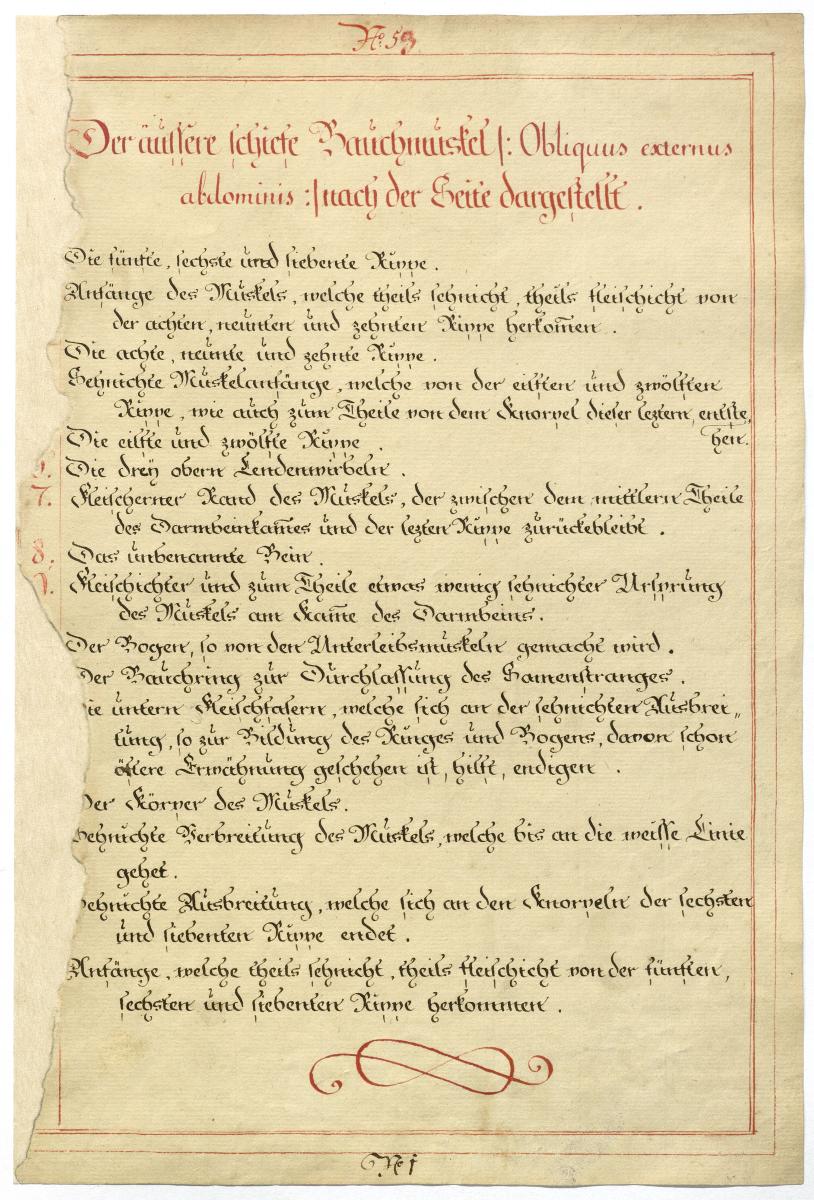 No. 53
Der äussere schiefe Bauchmuskel |: Obliquus externus
abdominis :| nach der Seite dargestellt.
Die fünfte, sechste und siebente Rippe.
Anfänge des Muskels, welche theils sehnicht, theils fleischicht von
der achten, neunten und zehnten Rippe herkom̅en.
Die achte, neunte und zehnte Rippe.
Sehnichte Muskelanfänge, welche von der eilften und zwölften
Rippe, wie auch zum Theile von dem Knorpel dieser leztern, entste,
hen.
Die eilfte und zwölfte Rippe.
Die drey obern Lendenwirbeln.
7. Fleischerner Rand des Muskels, der zwischen dem mittlern Theile
des Darmbeinkam̅es und der lezten Rippe zurückebleibt.
8. Das unbenannte Bein.
Fleischichter und zum Theile etwas wenig sehnichter Ursprung
des Muskels am Kam̅e des Darmbeins.
Der Bogen, so von den Unterleibsmuskeln gemacht wird.
Der Bauchring zur Durchlassung des Samenstranges.
ie untern Fleischfasern, welche sich an der sehnichten Ausbrei„
tung, so zur Bildung des Ringes und Bogens, davon schon
öftere Erwähnung geschehen ist, hilft, endigen.
Der Körper des Muskels.
Sehnichte Verbreitung des Muskels, welche bis an die weisse Linie
gehet.
Sehnichte Ausbreitung, welche sich an den Knorpeln der sechsten
und siebenten Rippe endet.
Anfänge, welche theils sehnicht, theils fleischicht von der fünften,
sechsten und siebenten Rippe herkommen.